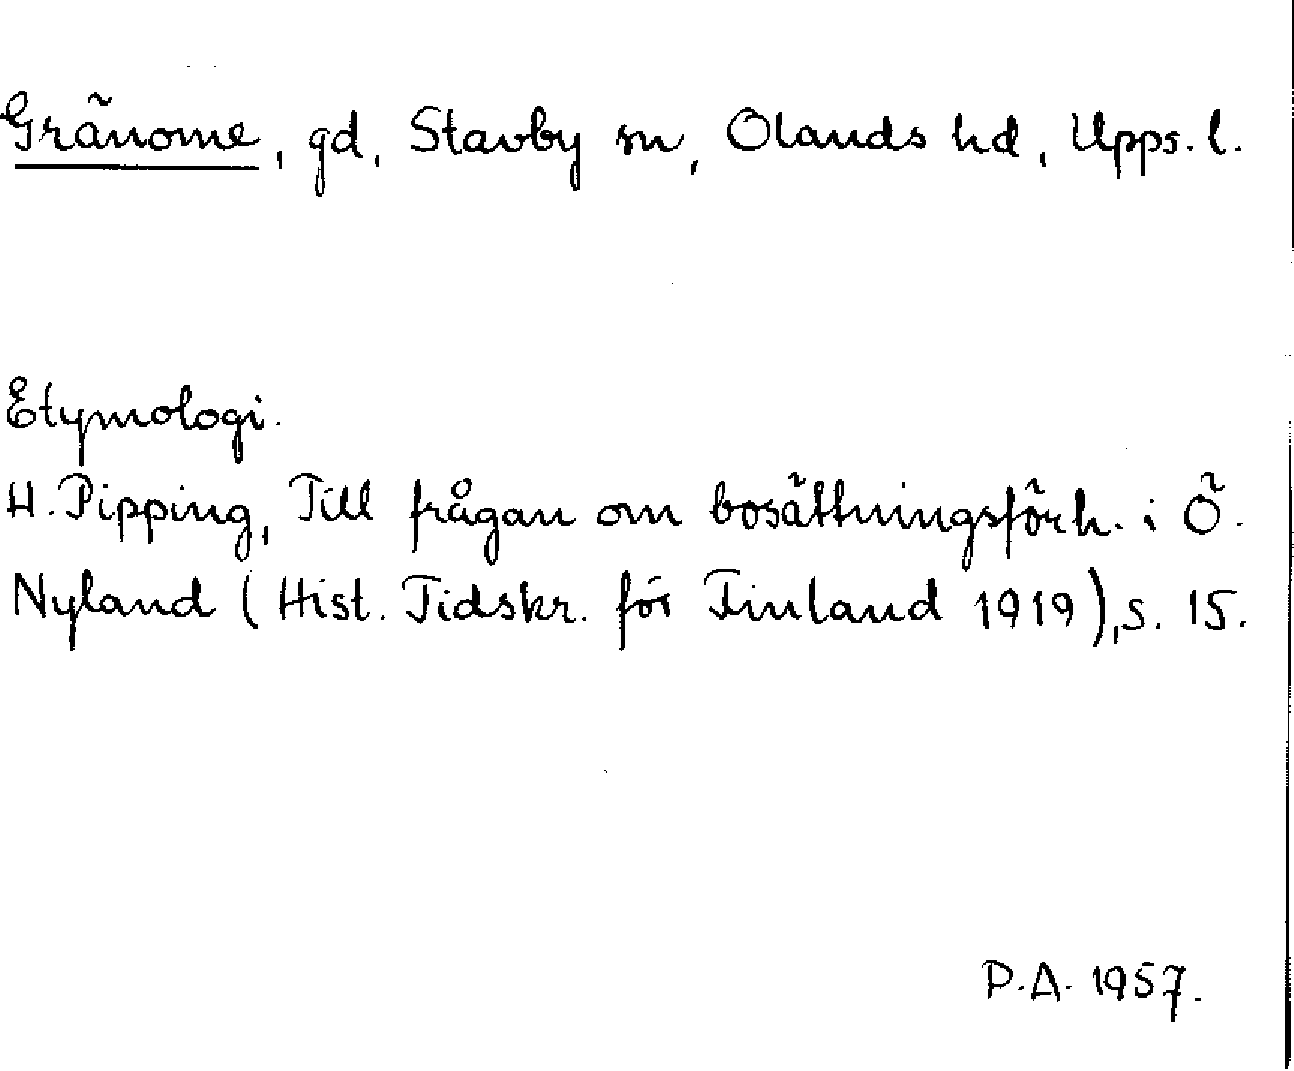 Gränome, gd, Stavby sn, Olands hd, Upps. l.
Etymologi.
H. Pipping, Till frågan om bosättningsförh. i Ö.
Nyland (Hist. Tidskr. för Finland 1919), s. 15.
P.A. 1957.